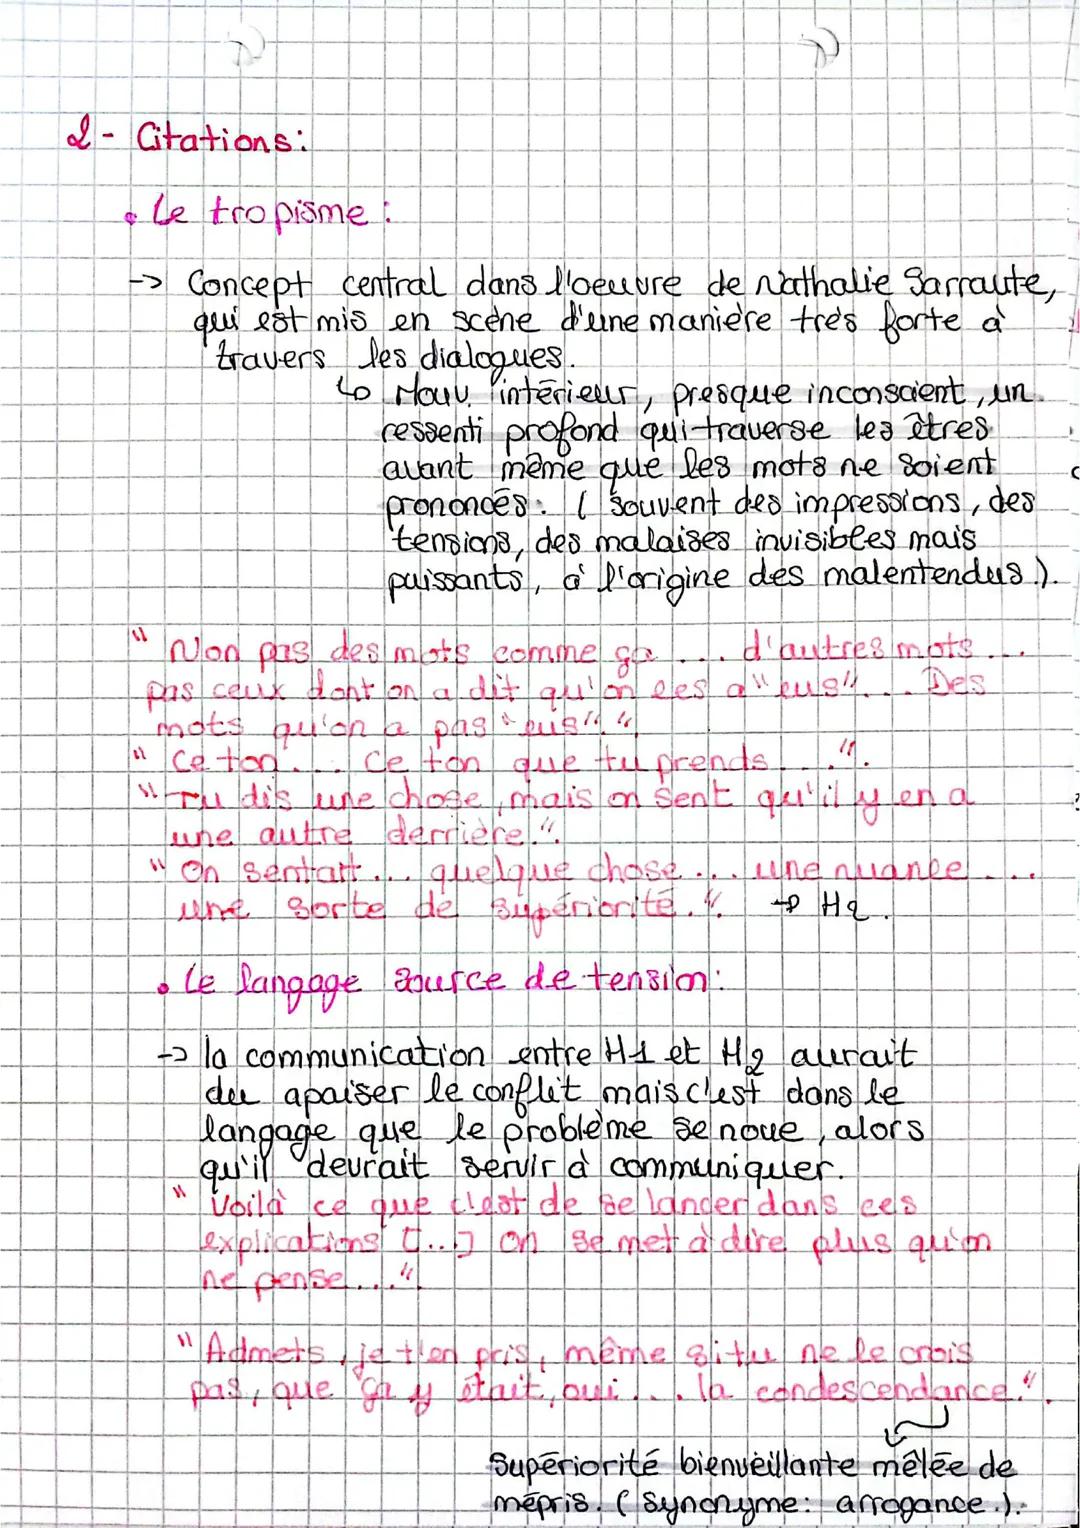 2- Citations:
• Le tropisme :
-> Concept central dans l'oeuvre de Nathalie Sarraute,
qui est mis en scène d'une manière très forte à
travers les dialogues.
↳ Mouv. intérieur, presque inconscient, un
ressenti profond qui traverse les êtres
avant même que les mots ne soient
prononcés. ( souvent des impressions, des
tensions, des malaises invisibles mais
puissants, à l'origine des malentendus ).
" Non pas des mots comme ça ... d'autres mots ...
pas ceux dont on a dit qu'on les a "eus"... Des
mots qu'on a pas "eus"."
" Ce ton... Ce ton que tu prends ...".
"Tu dis une chose, mais on sent qu'il y en a
une autre derrière.".
" On sentait... quelque chose ... une nuance ...
une sorte de supériorité.". -> H2.
• Le langage source de tension:
-> la communication entre H1 et H2 aurait
du apaiser le conflit mais c'est dans le
langage que le problème se noue, alors
qu'il devrait servir à communiquer.
" Voilà ce que c'est de se lancer dans ces
explications [...] on se met à dire plus qu'on
ne pense...".
" Admets, je t'en pris, même si tu ne le crois
pas, que ça y était, oui ... la condescendance.".
Supériorité bienveillante mêlée de
mépris. ( Synonyme: arrogance.).